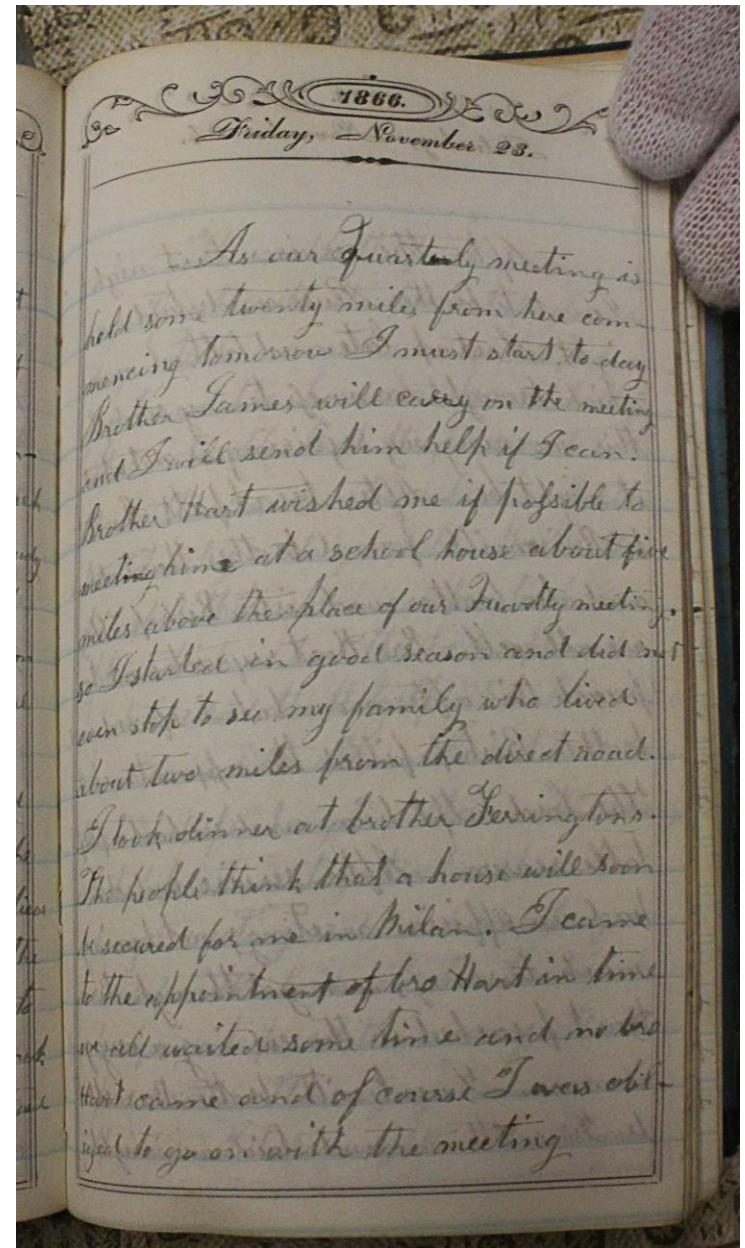 1866.
Friday, November 23.
As our Quarterly meeting is
held some twenty miles from here com-
mencing tomorrow I must start to day
Brother James will carry on the meeting
and I will send him help if I can.
Brother Hart wished me if possible to
meeting him at a school house about five
miles above the place of our Quartly meeting.
so I started in good season and did not
even stop to see my family who lived
about two miles from the direct road.
I took dinner at brother Ferringtons.
The people think that a house will soon
be secured for me in Milan. I came
to the appointment of bro Hart in time
we all waited some time and no bro
Hart came and of course I was obli-
ged to go on with the meeting